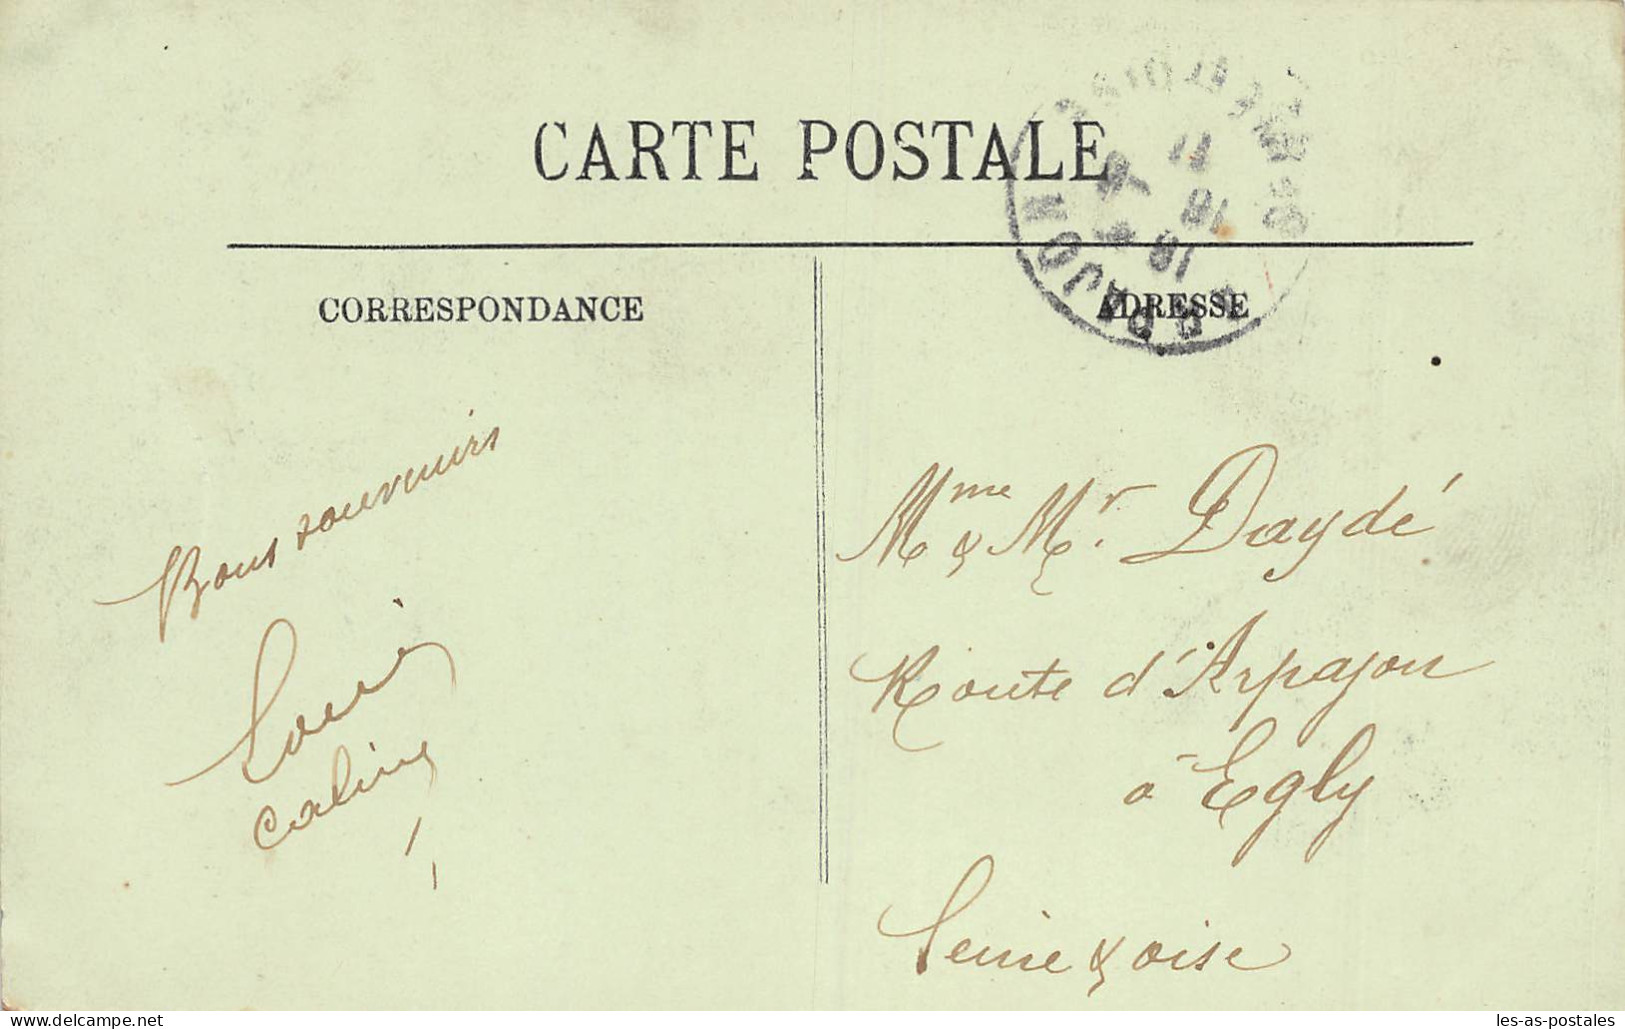 CARTE POSTALE
CORRESPONDANCE
ADRESSE
ARPAJON
Bons souvenirs
Mme & Mr. Daydé
Route d'Arpajon
à Egly
Seine & oise
Delcampe.net
les-as-postales